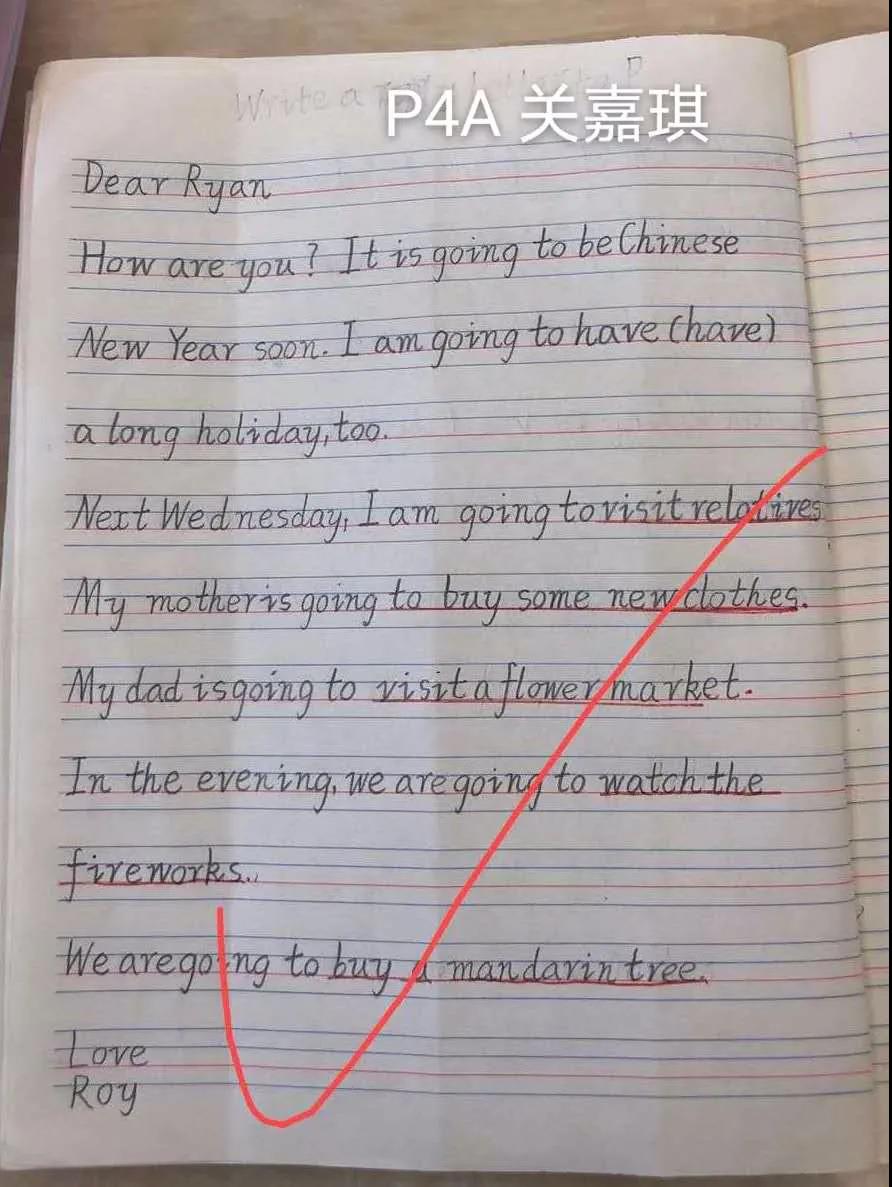 Write a
P4A 关嘉琪
Dear Ryan
How are you? It is going to be Chinese
New Year soon. I am going to have (have)
a long holiday, too.
Next Wednesday, I am going to visit relatives
My mother is going to buy some new clothes.
My dad is going to visit a flower market.
In the evening, we are going to watch the
fireworks.
We are going to buy a mandarin tree.
Love
Roy